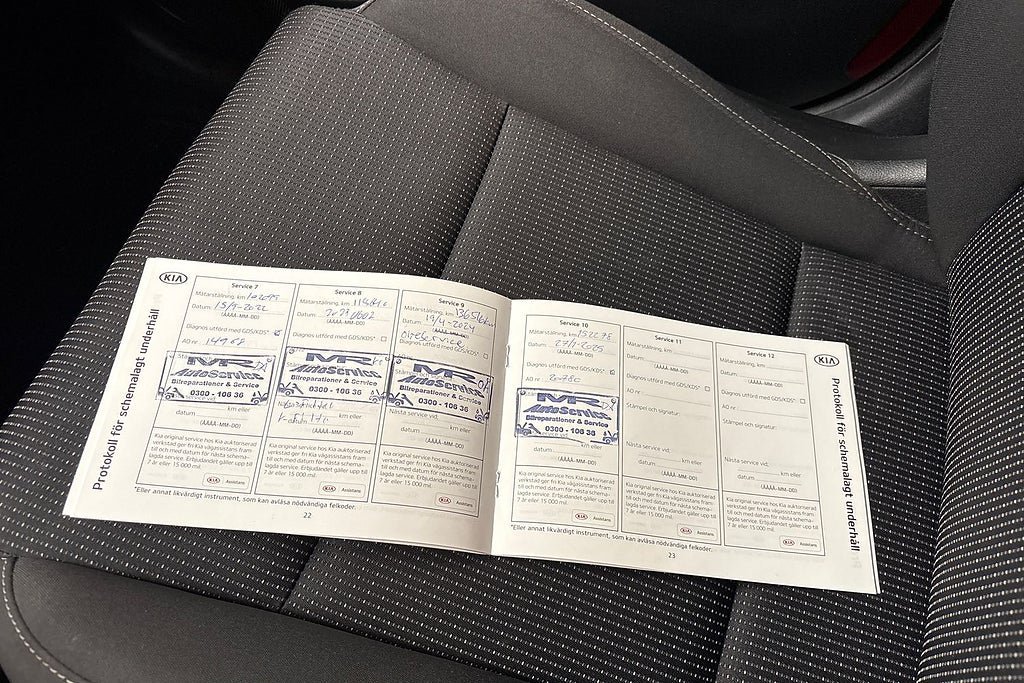 KIA
Protokoll för schemalagt underhåll
Service 7
Mätarställning, km 102099
Datum 15/9-2022
(ÅÅÅÅ-MM-DD)
Diagnos utförd med GDS/KDS*
AO nr
MR
AutoService
Bilreparationer & Service
0300 - 106 36
datum km eller
(ÅÅÅÅ-MM-DD)
Kia original service hos Kia auktoriserad
verkstad ger fri Kia vägassistans fram
till och med datum för nästa schema-
lagda service. Erbjudandet gäller upp till
7 år eller 15 000 mil.
KIA Assistans
Service 8
Mätarställning, km
Datum
(ÅÅÅÅ-MM-DD)
Diagnos utförd med GDS/KDS*
AO nr
MR
AutoService
Bilreparationer & Service
0300 - 106 36
datum km eller
(ÅÅÅÅ-MM-DD)
Kia original service hos Kia auktoriserad
verkstad ger fri Kia vägassistans fram
till och med datum för nästa schema-
lagda service. Erbjudandet gäller upp till
7 år eller 15 000 mil.
KIA Assistans
Service 9
Mätarställning, km 136516
Datum 19/4-2024
(ÅÅÅÅ-MM-DD)
Oljeservice
Diagnos utförd med GDS/KDS*
MR
AutoService
Bilreparationer & Service
0300 - 106 36
Nästa service vid:
km eller
datum
(ÅÅÅÅ-MM-DD)
Kia original service hos Kia auktoriserad
verkstad ger fri Kia vägassistans fram
till och med datum för nästa schema-
lagda service. Erbjudandet gäller upp till
7 år eller 15 000 mil.
KIA Assistans
*Eller annat likvärdigt instrument, som kan avläsa nödvändiga felkoder.
22
Service 10
Mätarställning, km 152278
Datum 27/1-2025
(ÅÅÅÅ-MM-DD)
Diagnos utförd med GDS/KDS*
AO nr 20780
MR
AutoService
Bilreparationer & Service
0300 - 106 36
datum
(ÅÅÅÅ-MM-DD)
Kia original service hos Kia auktoriserad
verkstad ger fri Kia vägassistans fram
till och med datum för nästa schema-
lagda service. Erbjudandet gäller upp till
7 år eller 15 000 mil.
KIA Assistans
Service 11
Mätarställning, km
Datum
(ÅÅÅÅ-MM-DD)
Diagnos utförd med GDS/KDS*
AO nr
Stämpel och signatur:
Nästa service vid:
km eller
datum
(ÅÅÅÅ-MM-DD)
Kia original service hos Kia auktoriserad
verkstad ger fri Kia vägassistans fram
till och med datum för nästa schema-
lagda service. Erbjudandet gäller upp till
7 år eller 15 000 mil.
KIA Assistans
Service 12
Mätarställning, km
Datum
(ÅÅÅÅ-MM-DD)
Diagnos utförd med GDS/KDS*
AO nr
Stämpel och signatur:
Nästa service vid:
km eller
datum
(ÅÅÅÅ-MM-DD)
Kia original service hos Kia auktoriserad
verkstad ger fri Kia vägassistans fram
till och med datum för nästa schema-
lagda service. Erbjudandet gäller upp till
7 år eller 15 000 mil.
KIA Assistans
*Eller annat likvärdigt instrument, som kan avläsa nödvändiga felkoder.
23
KIA
Protokoll för schemalagt underhåll